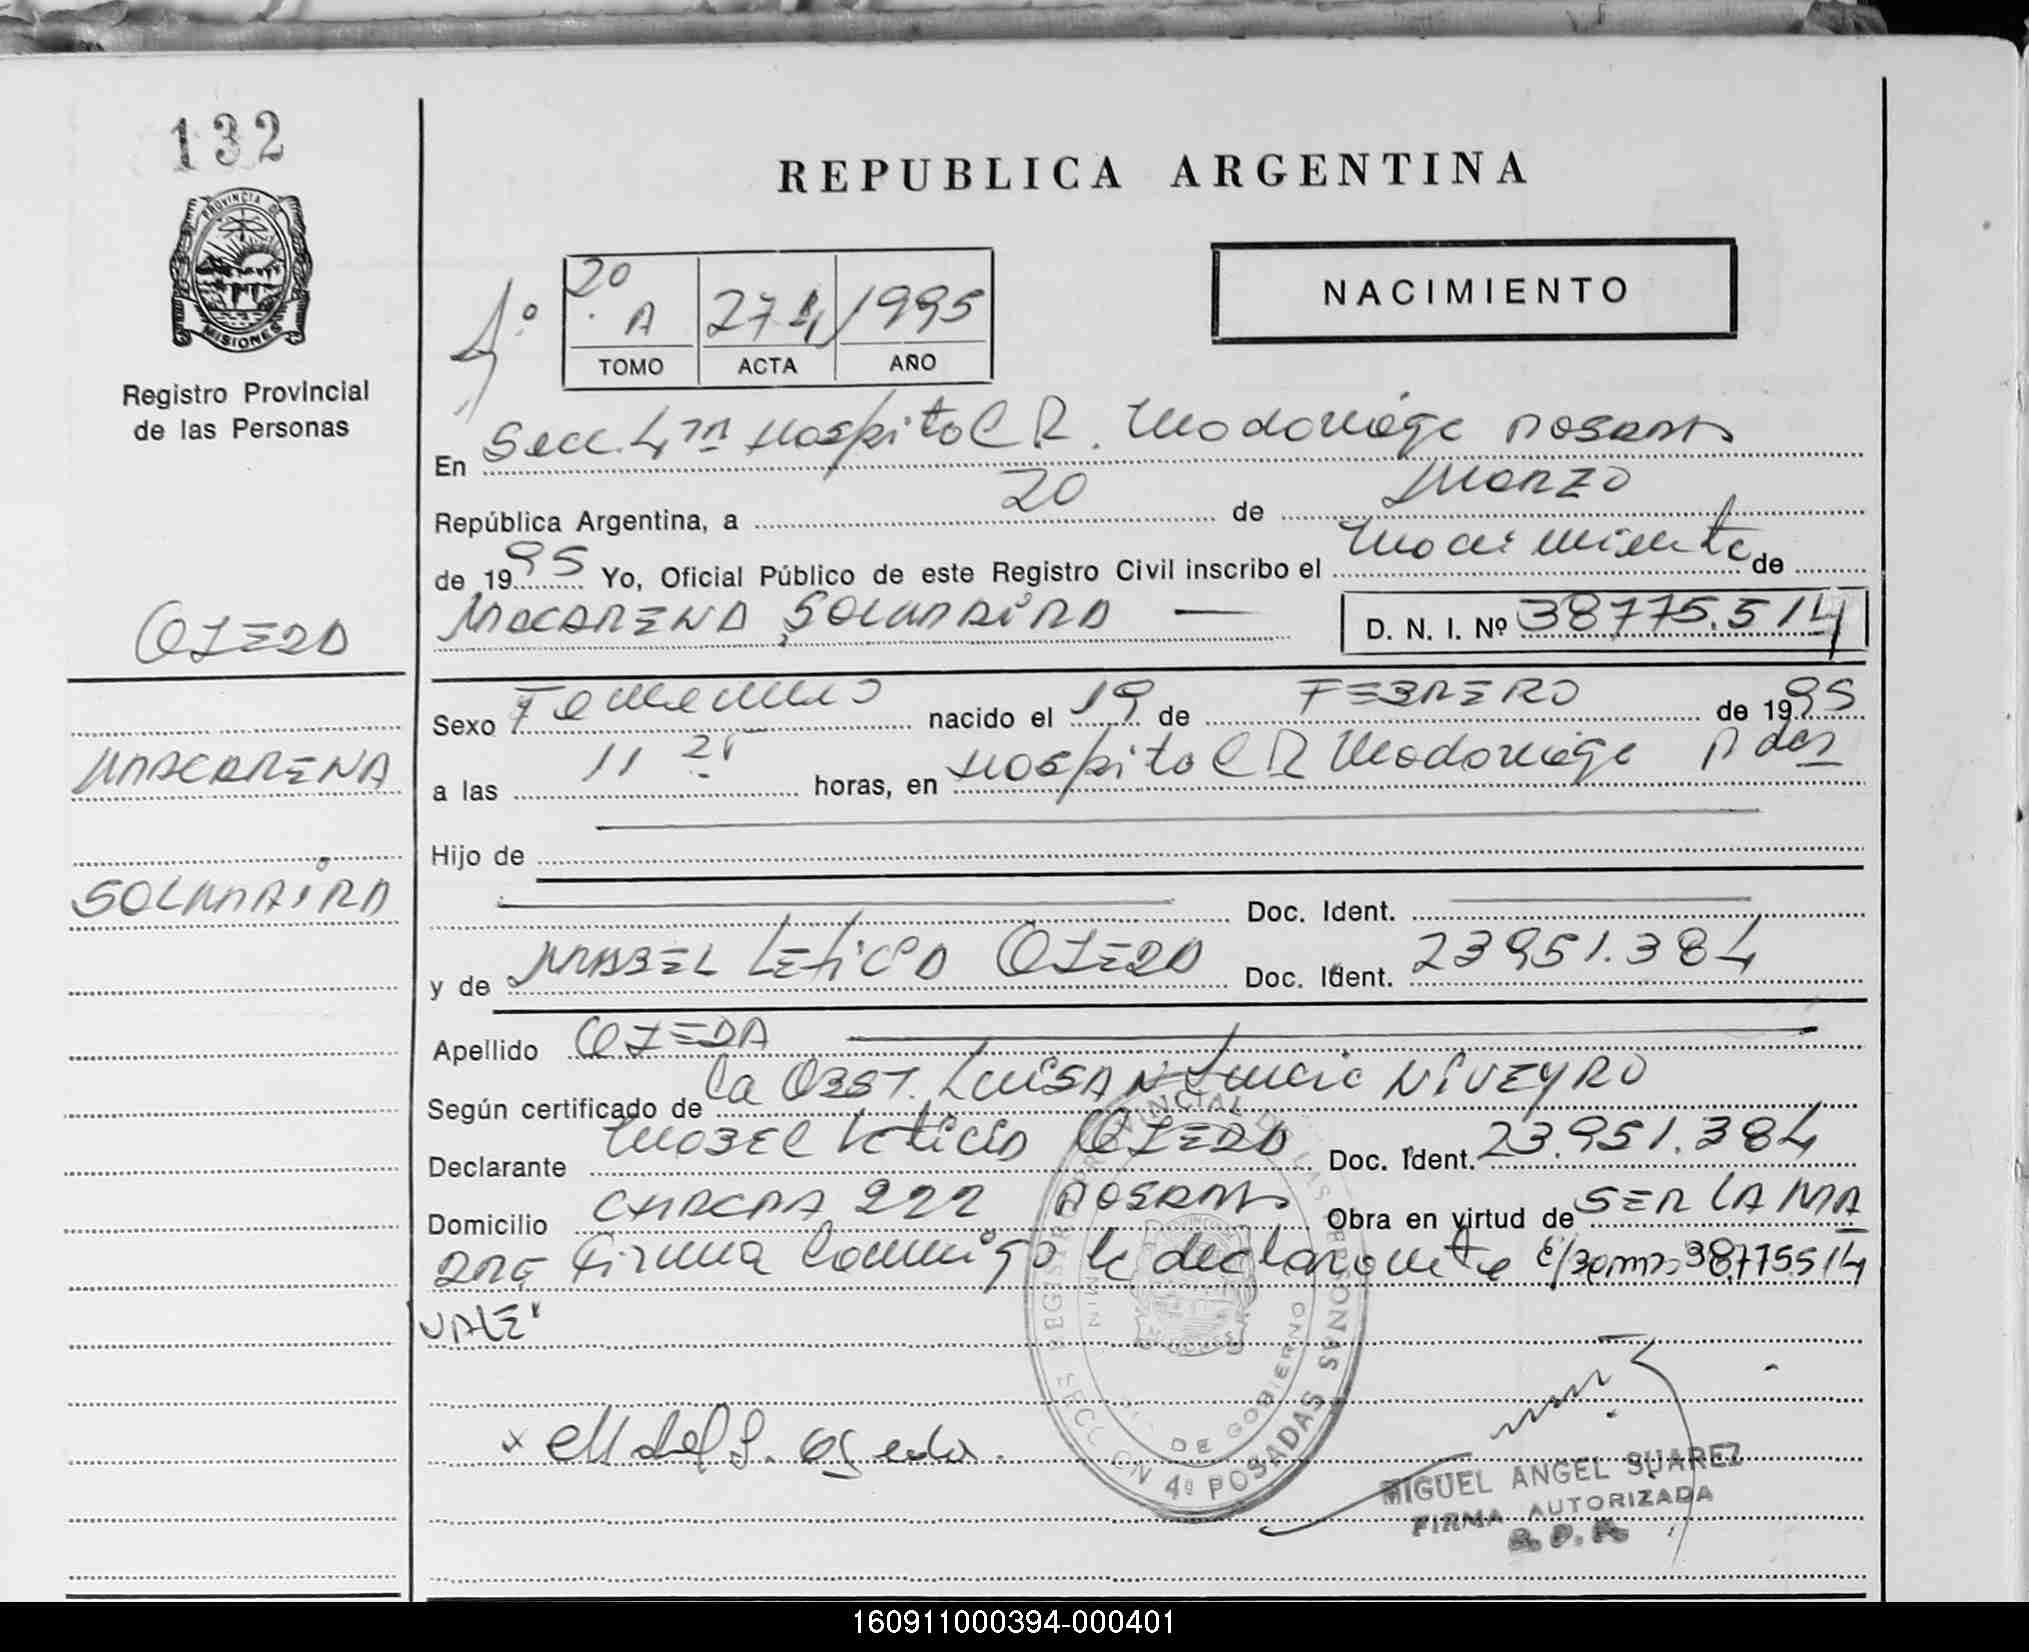 132
PROVINCIA DE
MISIONES
Registro Provincial
de las Personas
OJEDA
MACARENA
SOLMAIRA
REPUBLICA ARGENTINA
NACIMIENTO
4º 20 A 274 1995
TOMO ACTA AÑO
En Secc. 4ta Hospital R. Madariaga Posadas
República Argentina, a 20 de Marzo
de 1995 Yo, Oficial Público de este Registro Civil inscribo el Nacimiento de
MACARENA SOLMAIRA D. N. I. Nº 38775.514
Sexo Femenino nacido el 19 de FEBRERO de 1995
a las 11 25 horas, en Hospital R Madariaga Pdas
Hijo de
Doc. Ident.
y de MABEL LETICIA OJEDA Doc. Ident. 23951.384
Apellido OJEDA
Según certificado de la OBST. LUISA Lucia NIVEYRO
Declarante Mabel Leticia OJEDA Doc. Ident. 23.951.384
Domicilio CHACRA 222 POSADAS Obra en virtud de SER LA MA
DRE Firma Conmigo la declarante E/ 38775514
VALE
REGISTRO PROVINCIAL DE LAS PERSONAS
DE GOBIERNO
SECCION 4º POSADAS
MIGUEL ANGEL SUAREZ
FIRMA AUTORIZADA
R.P.P.
160911000394-000401